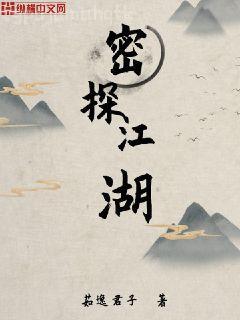 纵横中文网
密
探
江
湖
茹逸君子 著